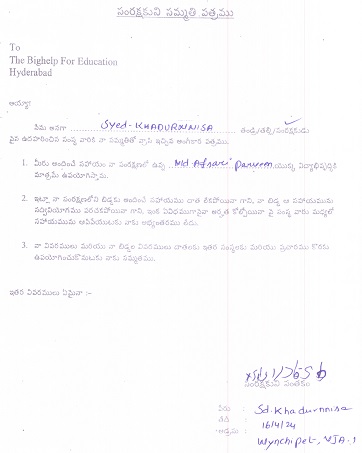 సంరక్షకుని సమ్మతి పత్రము
To
The Bighelp For Education
Hyderabad
అయ్యా!
నేను అనగా Syed-KHADURNNISA తండ్రి/తల్లి/సంరక్షకుడు
పైన ఉదహరించిన సంస్థ వారికి నా సమ్మతితో వ్రాసి ఇచ్చిన అంగీకార పత్రము.
1. మీరు అందించే సహాయం నా సంరక్షణలో ఉన్న Md Afnari Parveen యొక్క విద్యాభివృద్ధికి
మాత్రమే ఉపయోగిస్తాను.
2. ఇట్లా నా సంరక్షణలోని బిడ్డకు అందించే సహాయము దాత లేకపోయినా గాని, నా బిడ్డ ఆ సహాయమును
సద్వినియోగము పరచకపోయినా గాని, ఇంక ఏవిధముగానైనా అర్హత కోల్పోయినా పై సంస్థ వారు మధ్యలో
సహాయమును ఆపివేయుటకు నాకు అభ్యంతరము లేదు.
3. నా వివరములు మరియు నా బిడ్డల వివరములు దాతలకు ఇతర సంస్థలకు మరియు ప్రచారము కొరకు
ఉపయోగించుకొనుటకు నాకు సమ్మతము.
ఇతర వివరములు ఏమైనా :-
సంరక్షకుని సంతకం
పేరు : Sd. Khadurnnisa
తేదీ : 16/4/24
అడ్రసు : Wynchipet, VJA.1